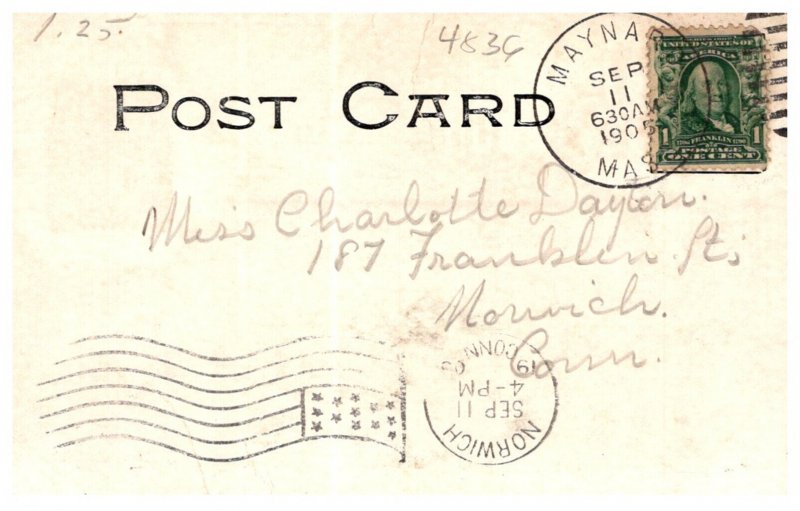 1.25.
4836
POST CARD
MAYNA
SEP
11
630AM
1905
MAS
UNITED STATES OF
AMERICA
FRANKLIN
1 1
POSTAGE
ONE CENT
Miss Charlotte Dayton.
187 Franklin St;
Norwich.
Conn.
NORWICH
SEP 11
4-PM
CONN.